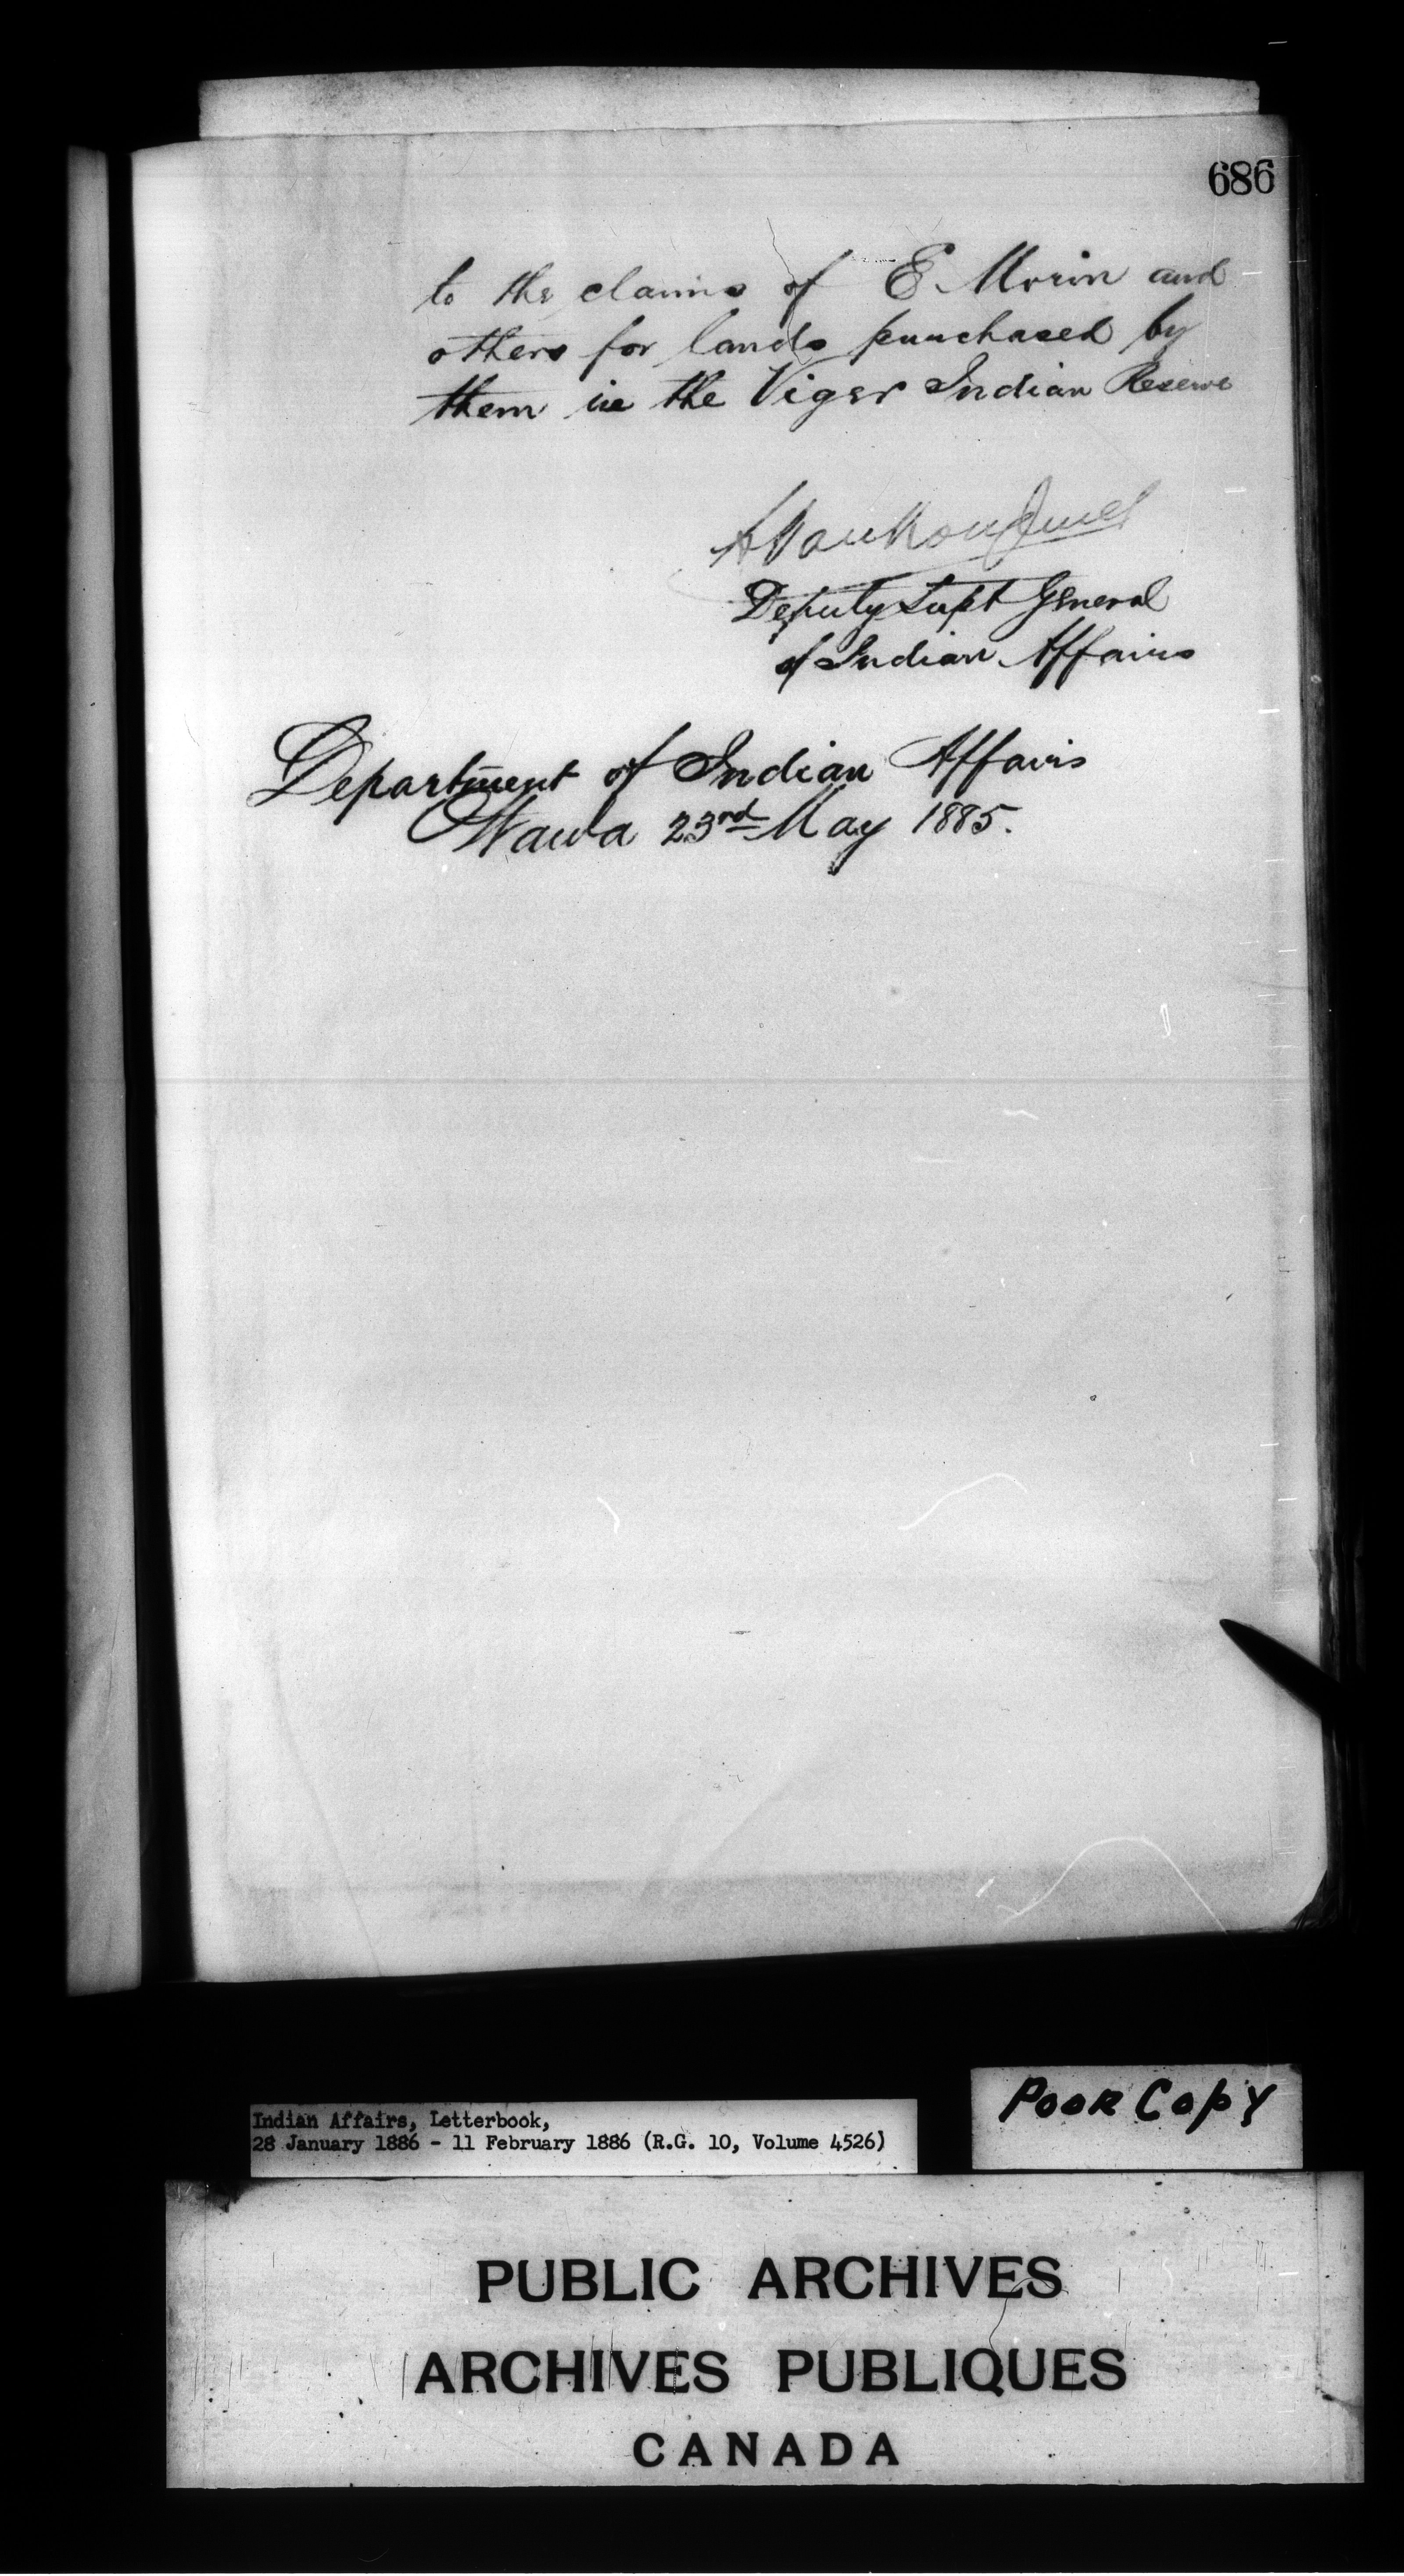 686
to the claims of E. Morin and
others for lands purchased by
them in the Viger Indian Reserve
L Vankoughnet
Deputy Supt General
of Indian Affairs
Department of Indian Affairs
Ottawa 23rd May 1885.
Indian Affairs, Letterbook,
28 January 1886 - 11 February 1886 (R.G. 10, Volume 4526)
POOR COPY
PUBLIC ARCHIVES
ARCHIVES PUBLIQUES
CANADA